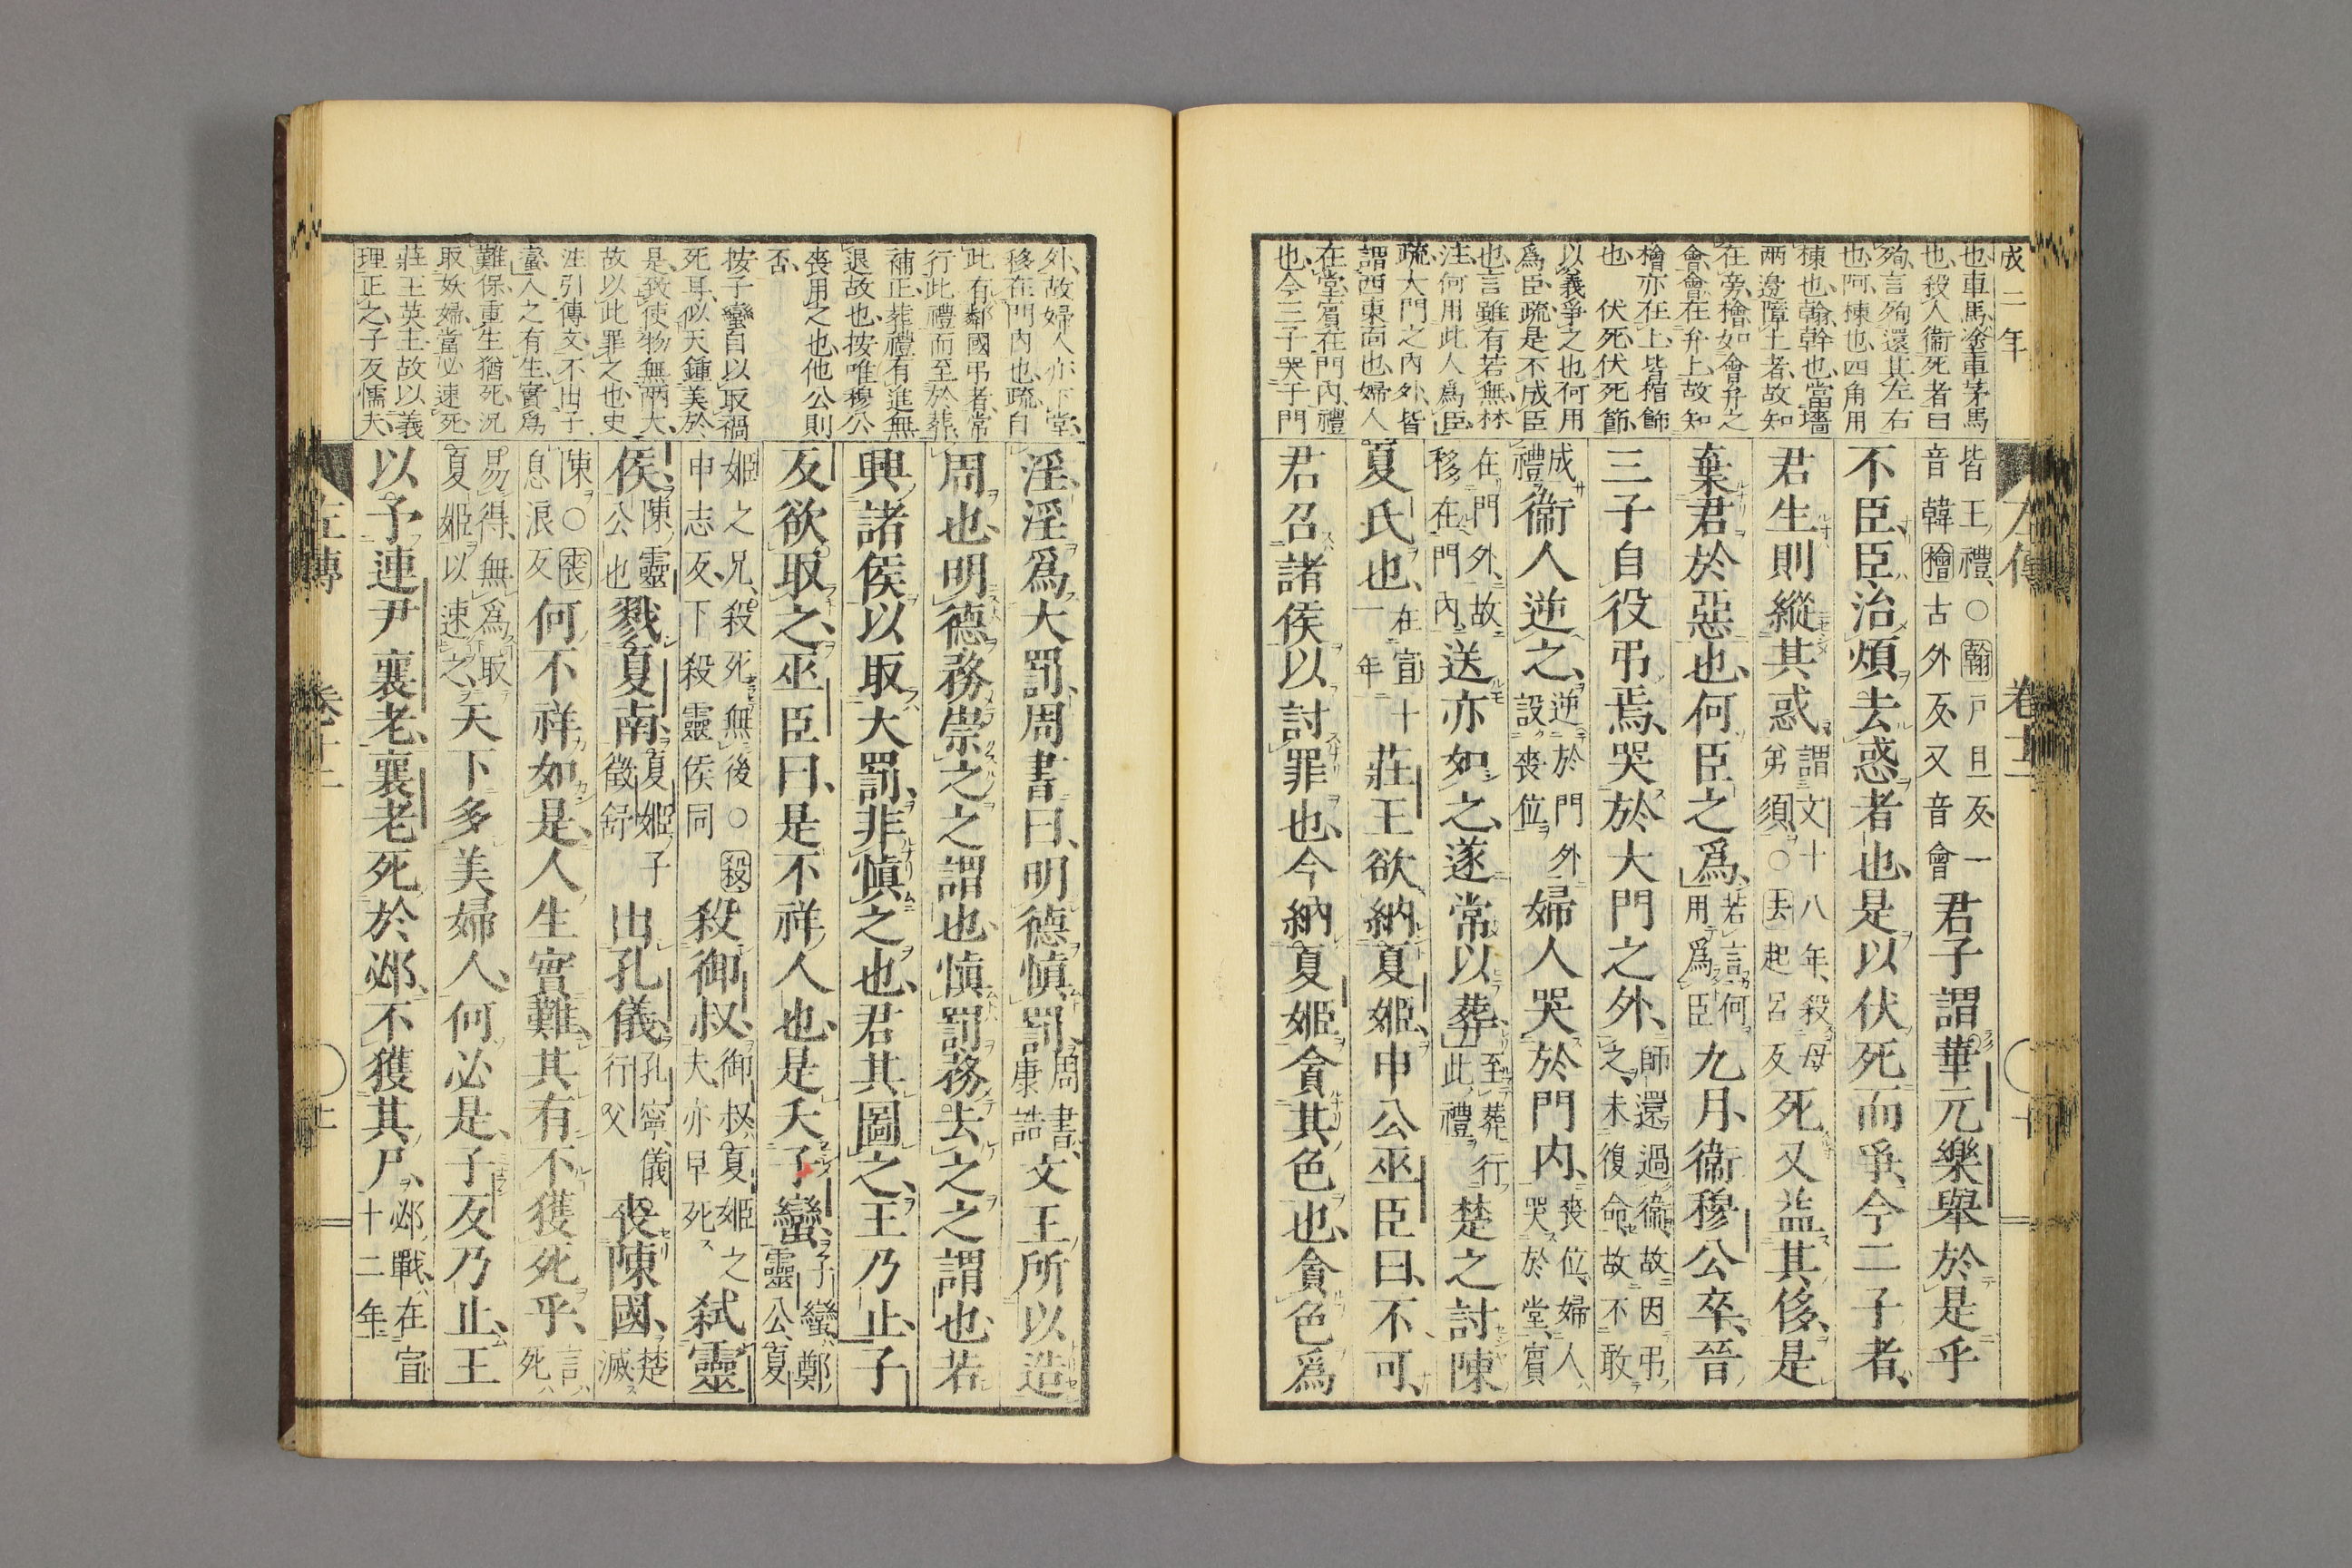 成二年
左傳 卷十二 〇 十
也車馬塗車茅馬
也殺人衞死者曰
殉言殉還其左右
也阿棟也四角用
棟也翰幹也當墻
兩邊障土者故知
在旁檜如會弁之
會會在弁上故知
檜亦在上皆指飾
也 伏死伏死節
以義爭之也何用
爲臣疏是不成臣
也言雖有若無林
注何用此人爲臣
疏大門之內外皆
謂西東面也婦人
在堂賓在門內禮
也今三子哭于門
皆王禮〇翰戶旦反一音韓檜古外反又音會君子謂華元樂舉於是乎
不臣臣治煩去惑者也是以伏死而爭今二子者
君生則縱其惑謂文十八年殺母弟須〇去起呂反死又益其侈是
棄君於惡也何臣之爲若言何用爲臣九月衞穆公卒晉
三子自役弔焉哭於大門之外師還過衞故因弔之未復命故不敢
成禮衞人逆之逆於門外設喪位婦人哭於門內喪位婦人哭於堂賓
在門外故移在門內送亦如之遂常以葬至葬行此禮楚之討陳
夏氏也在宣十一年莊王欲納夏姬申公巫臣曰不可
君召諸侯以討罪也今納夏姬貪其色也貪色爲
外故婦人亦下堂
移在門內也疏自
此有鄰國弔者常
行此禮而至於葬
補正葬禮有進無
退故也按唯穆公
喪用之也他公則
否
按子蠻自以取禍
死耳似天鍾美於
是致使物無兩大
故以此罪之也史
注引傳文不出子
蠻人之有生實爲
難保重生猶死況
取妖婦當必速死
莊王英主故以義
理正之子反懦夫
淫淫爲大罰周書曰明德愼罰周書康誥文王所以造
周也明德務崇之之謂也愼罰務去之之謂也若
興諸侯以取大罰非愼之也君其圖之王乃止子
反欲取之巫臣曰是不祥人也是夭子蠻子蠻鄭靈公夏
姬之兄殺死無後〇殺申志反下殺靈侯同殺御叔御叔夏姬之夫亦早死弒靈
侯陳靈公也戮夏南夏姬子徵舒出孔儀孔寧儀行父喪陳國楚滅
陳〇喪息浪反何不祥如是人生實難其有不獲死乎言死
易得無爲取夏姬以速之天下多美婦人何必是子反乃止王
以予連尹襄老襄老死於邲不獲其尸邲戰在宣十二年
左傳 卷十二 〇 上